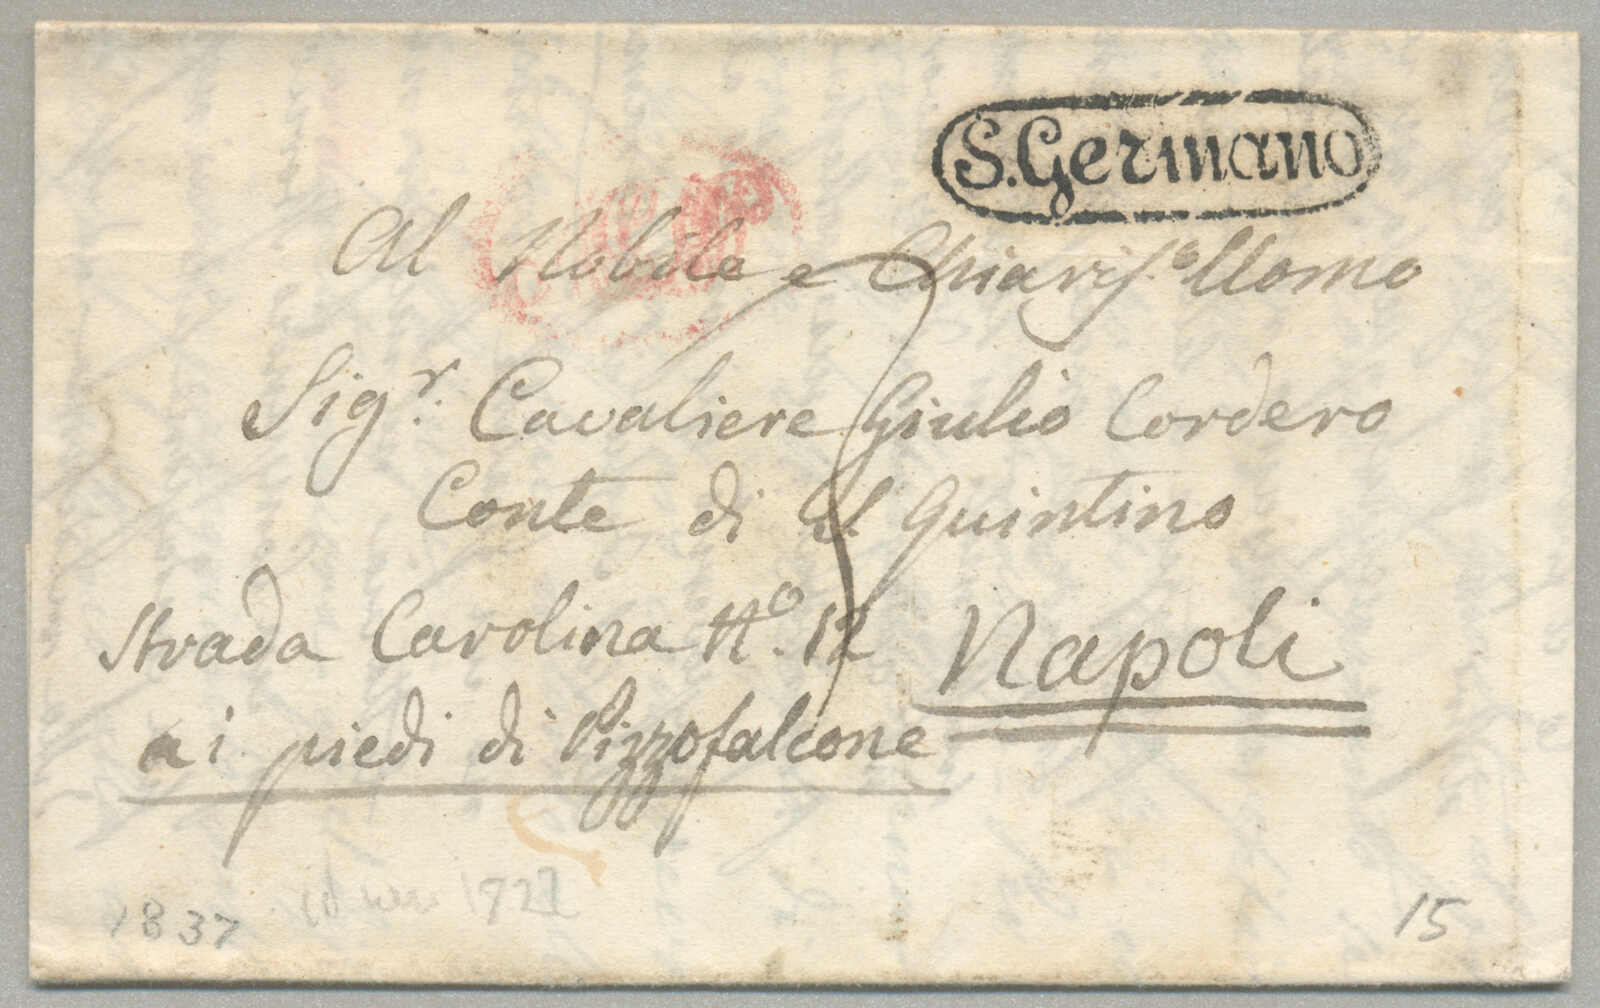 S. Germano
Al Nobile e Chiaris.o Uomo
Sigr. Cavaliere Giulio Cordero
Conte di S Quintino
Strada Carolina No. 12 Napoli
ai piedi di Pizzofalcone
1837
15